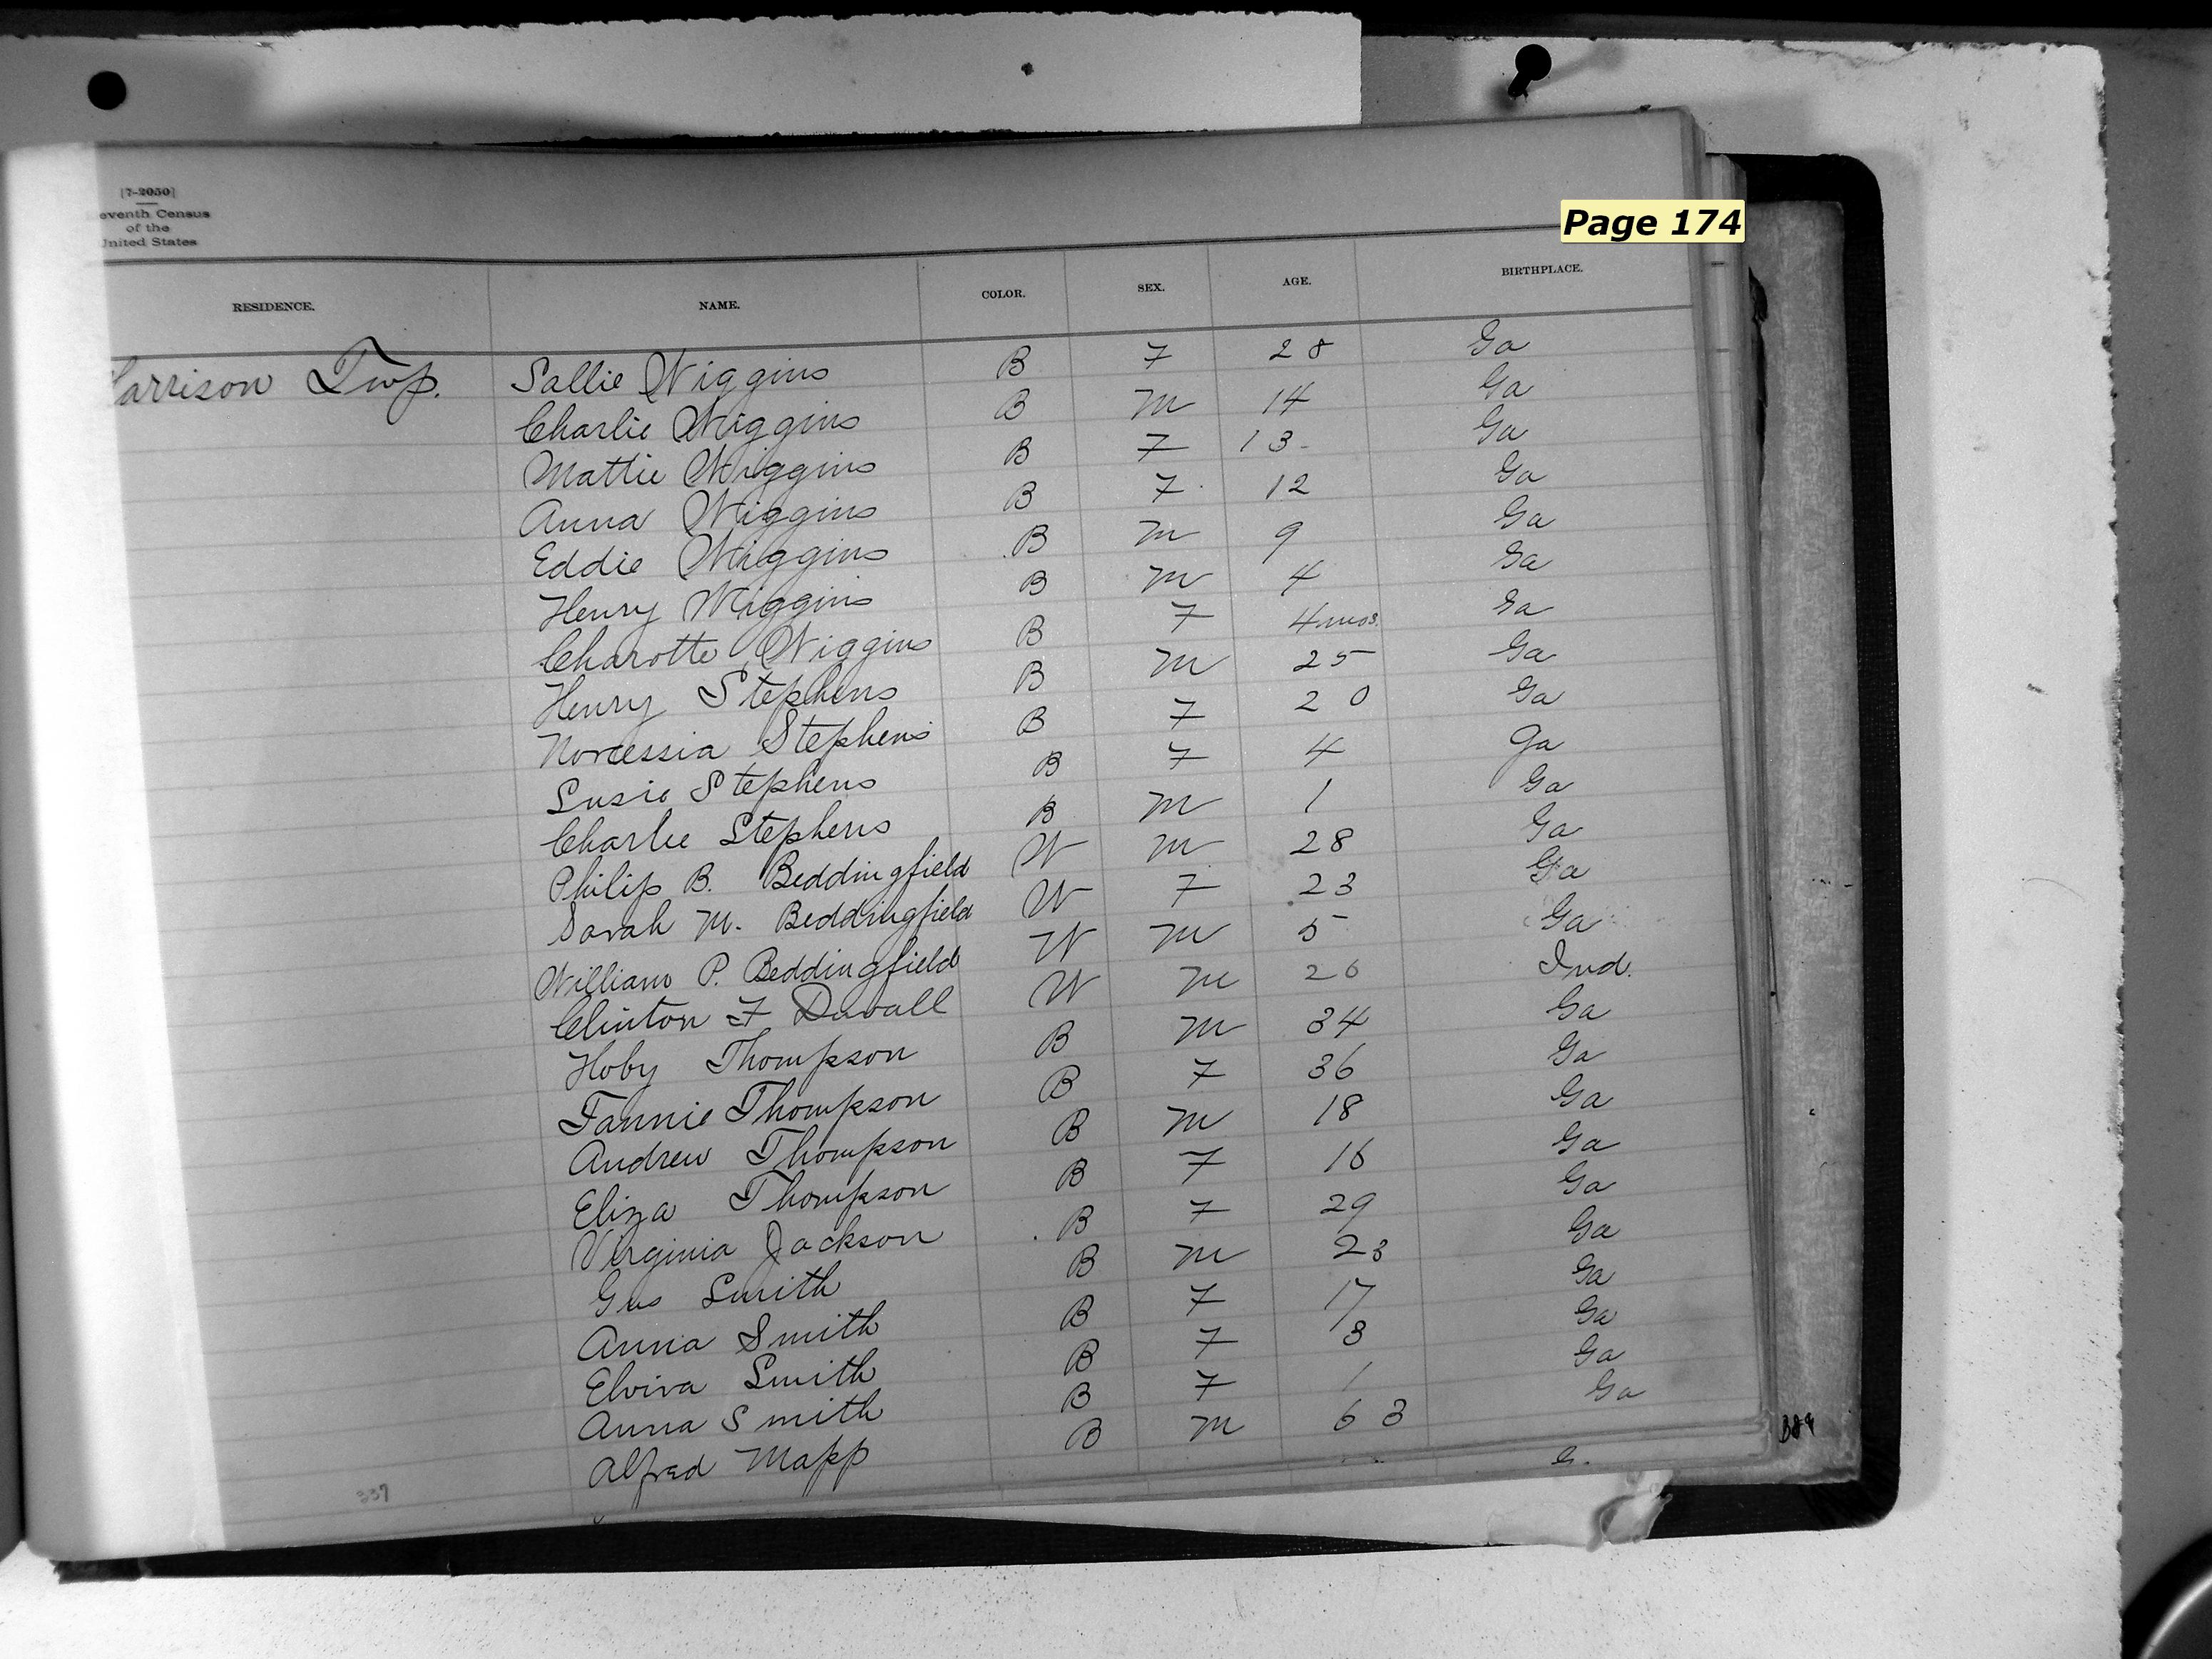 [7-2050]
eventh Census
of the
United States
Page 174
RESIDENCE. NAME. COLOR. SEX. AGE. BIRTHPLACE.
Harrison Twp. Sallie Wiggins B F 28 Ga
Charlie Wiggins B M 14 Ga
Mattie Wiggins B F 13 Ga
Anna Wiggins B F 12 Ga
Eddie Wiggins B M 9 Ga
Henry Wiggins B M 4 Ga
Charotte Wiggins B F 4 mos. Ga
Henry Stephens B M 25 Ga
Norcessia Stephens B F 20 Ga
Susie Stephens B F 4 Ga
Charlie Stephens B M 1 Ga
Philip B. Beddingfield W M 28 Ga
Sarah M. Beddingfield W F 23 Ga
William P. Beddingfield W M 5 Ga
Clinton F Duvall W M 26 Ind.
Hoby Thompson B M 34 Ga
Fannie Thompson B F 36 Ga
Andrew Thompson B M 18 Ga
Eliza Thompson B F 16 Ga
Virginia Jackson B F 29 Ga
Gus Smith B M 23 Ga
Anna Smith B F 17 Ga
Elvira Smith B F 3 Ga
Anna Smith B F 1 Ga
Alfred Mapp B M 63 Ga
337